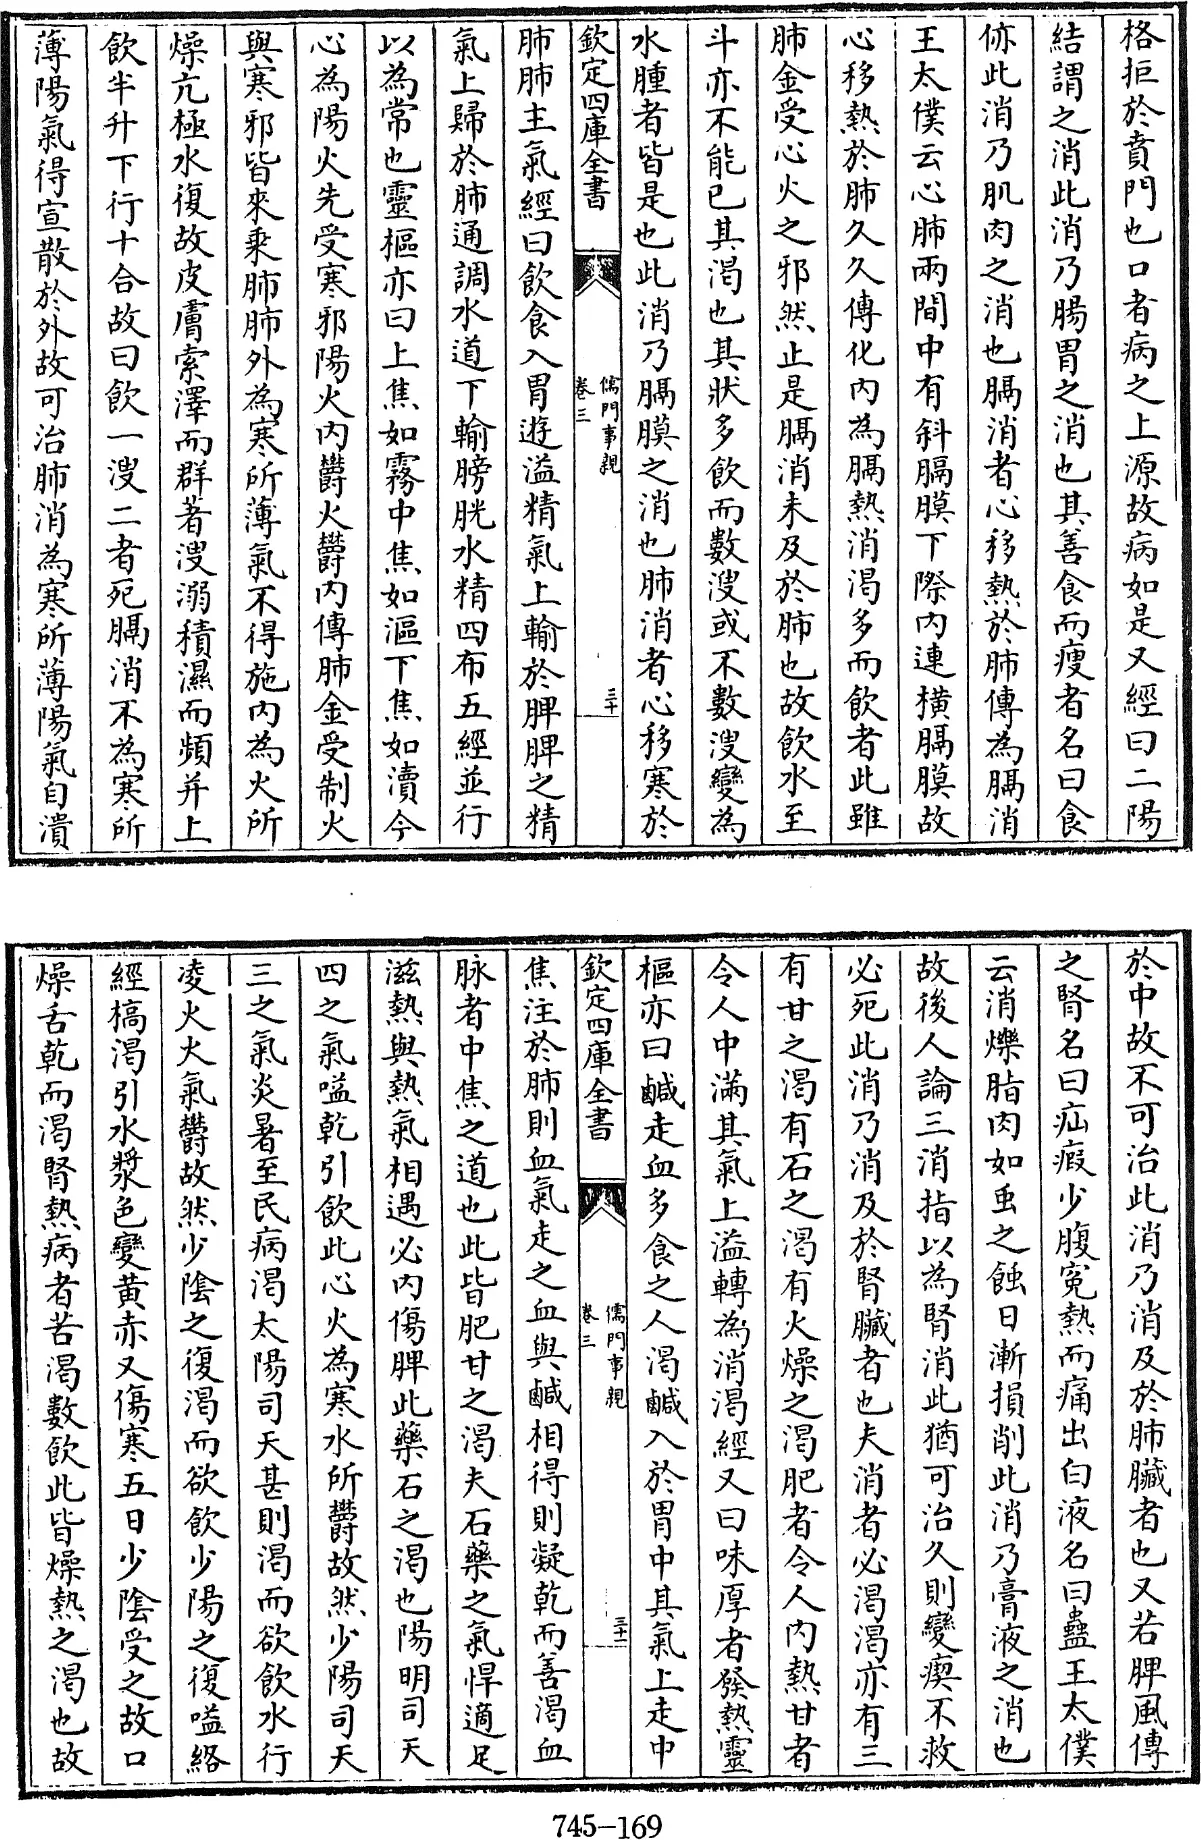 格拒於賁門也口者病之上源故病如是又經曰二陽
結謂之消此消乃腸胃之消也其善食而瘦者名曰食
㑊此消乃肌肉之消也膈消者心移熱於肺傳為膈消
王太僕云心肺兩間中有斜膈膜下際內連橫膈膜故
心移熱於肺久久傳化內為膈熱消渴多而飲者此雖
肺金受心火之邪然止是膈消未及於肺也故飲水至
斗亦不能已其渴也其狀多飲而數溲或不數溲變為
水腫者皆是也此消乃膈膜之消也肺消者心移寒於
欽定四庫全書
儒門事親
卷三
三十
肺肺主氣經曰飲食入胃遊溢精氣上輸於脾脾之精
氣上歸於肺通調水道下輸膀胱水精四布五經並行
以為常也靈樞亦曰上焦如霧中焦如漚下焦如瀆今
心為陽火先受寒邪陽火內鬱火鬱內傳肺金受制火
與寒邪皆來乘肺肺外為寒所薄氣不得施內為火所
燥亢極水復故皮膚索澤而群著溲溺積濕而頻并上
飲半升下行十合故曰飲一溲二者死膈消不為寒所
薄陽氣得宣散於外故可治肺消為寒所薄陽氣自潰
於中故不可治此消乃消及於肺臟者也又若脾風傳
之腎名曰疝瘕少腹寃熱而痛出白液名曰蠱王太僕
云消爍脂肉如虫之蝕日漸損削此消乃膏液之消也
故後人論三消指以為腎消此猶可治久則變瘈不救
必死此消乃消及於腎臟者也夫消者必渴渴亦有三
有甘之渴有石之渴有火燥之渴肥者令人內熱甘者
令人中滿其氣上溢轉為消渴經又曰味厚者發熱靈
樞亦曰鹹走血多食之人渴鹹入於胃中其氣上走中
欽定四庫全書
儒門事親
卷三
三十一
焦注於肺則血氣走之血與鹹相得則凝乾而善渴血
脉者中焦之道也此皆肥甘之渴夫石藥之氣悍適足
滋熱與熱氣相遇必內傷脾此藥石之渴也陽明司天
四之氣嗌乾引飲此心火為寒水所鬱故然少陽司天
三之氣炎暑至民病渴太陽司天甚則渴而欲飲水行
凌火火氣鬱故然少陰之復渴而欲飲少陽之復嗌絡
經槁渴引水漿色變黃赤又傷寒五日少陰受之故口
燥舌乾而渴腎熱病者苦渴數飲此皆燥熱之渴也故
745-169